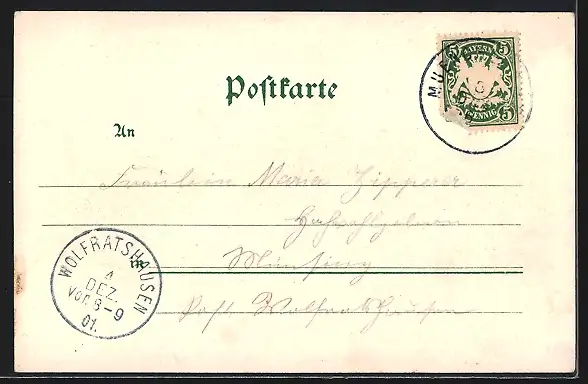 5 BAYERN 5
PFENNIG 5
Postkarte
An
Fräulein Maria Zipperer
in Münsing
Post Wolfratshausen
WOLFRATSHAUSEN
4
DEZ.
VOR. 8-9
01.